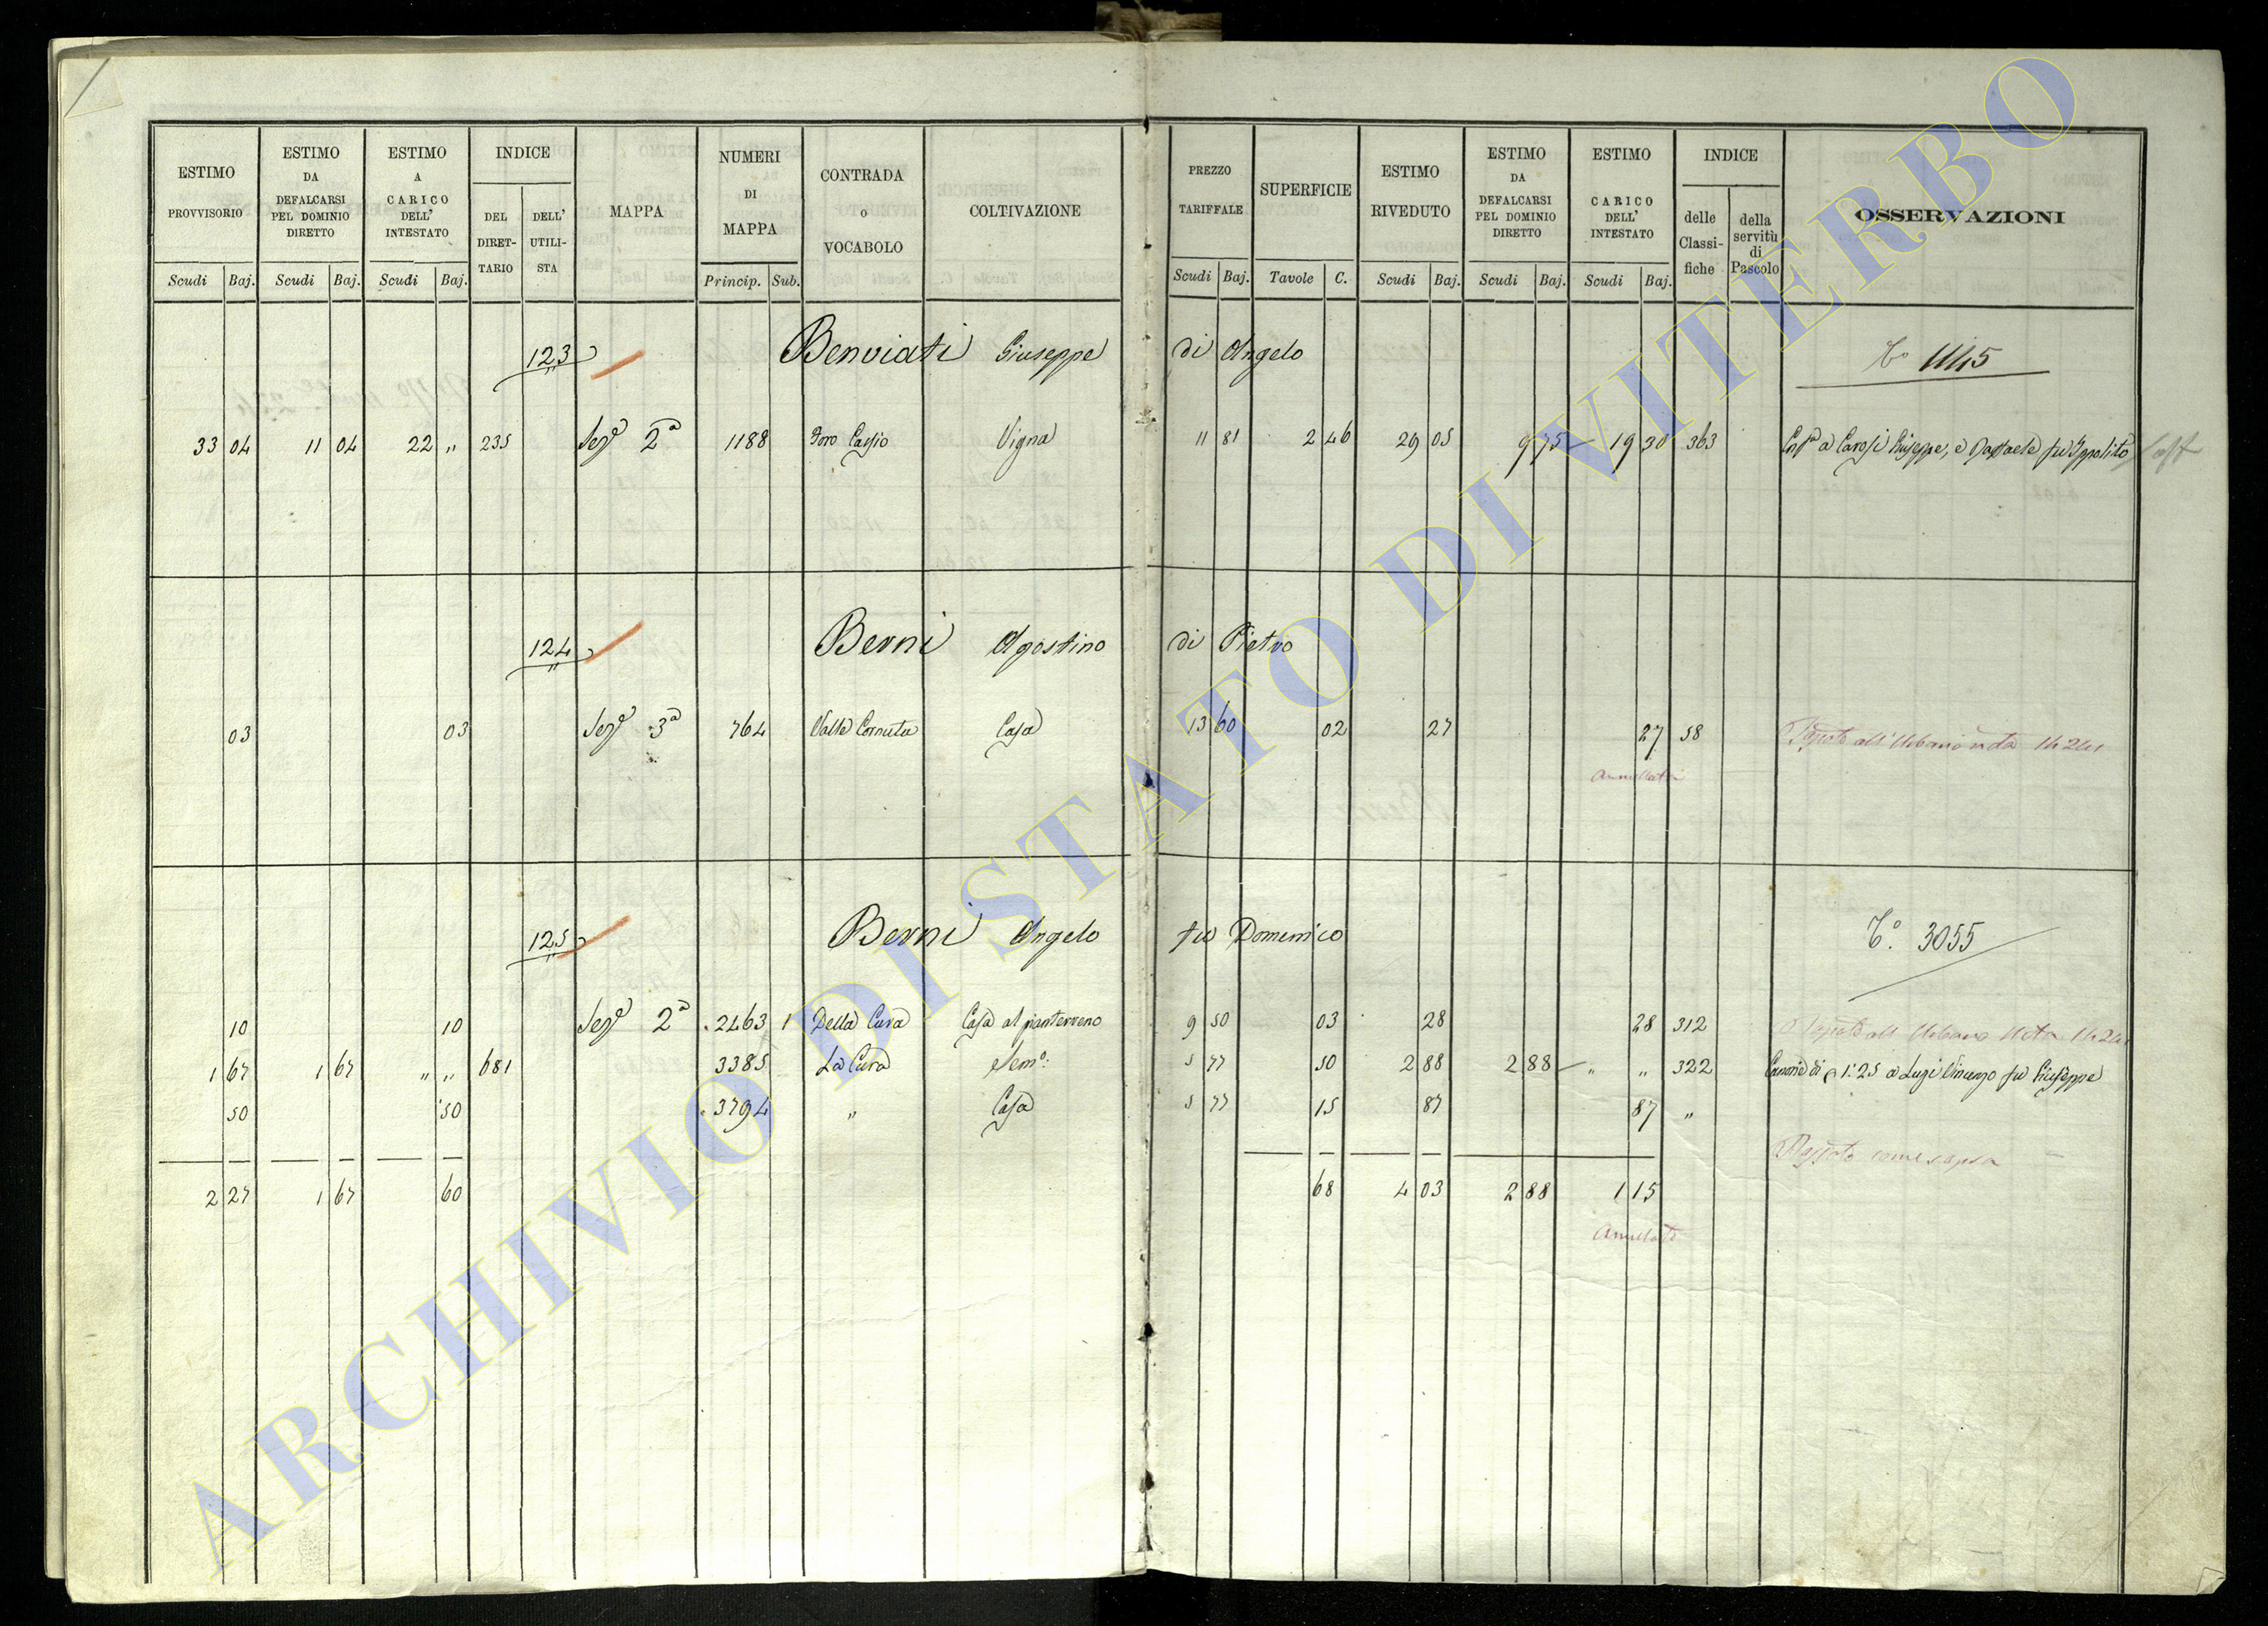 ESTIMO PROVVISORIO Scudi Baj. ESTIMO DA DEFALCARSI PEL DOMINIO DIRETTO Scudi Baj. ESTIMO A CARICO DELL' INTESTATO Scudi Baj. INDICE DEL DIRET-TARIO DELL' UTILI-STA MAPPA NUMERI DI MAPPA Princip. Sub. CONTRADA O VOCABOLO COLTIVAZIONE PREZZO TARIFFALE Scudi Baj. SUPERFICIE Tavole C. ESTIMO RIVEDUTO Scudi Baj. ESTIMO DA DEFALCARSI PEL DOMINIO DIRETTO Scudi Baj. ESTIMO CARICO DELL' INTESTATO Scudi Baj. INDICE delle Classi-fiche della servitù di Pascolo OSSERVAZIONI
123 Benviati Giuseppe di Angelo
33 04 11 04 22 " 235 Sez.e 2a 1188 Foro Cassio Vigna 11 81 2 46 29 05 9 75 19 30 363 a Carosi Giuseppe, e Raffaele fu Ippolito
124 Berni Agostino di Pietro
03 03 Sez.e 3a 764 Valle Cornuta Casa 13 60 02 27 27 58
Annullata
125 Berni Angelo fu Domenico To. 3055
10 10 Sez.e 2a 2463 1 Della Cura Casa al pianterreno 9 50 03 28 28 312
1 67 1 67 " " 681 3385 La Cura Sem.o 5 77 50 2 88 2 88 " " 322 Canone di 1:25 a Luzi Vincenzo fu Giuseppe
50 50 3794 " Casa 5 77 15 87 87 "
come sopra
2 27 1 67 60 68 4 03 2 88 1 15
Annullato
ARCHIVIO DI STATO DI VITERBO